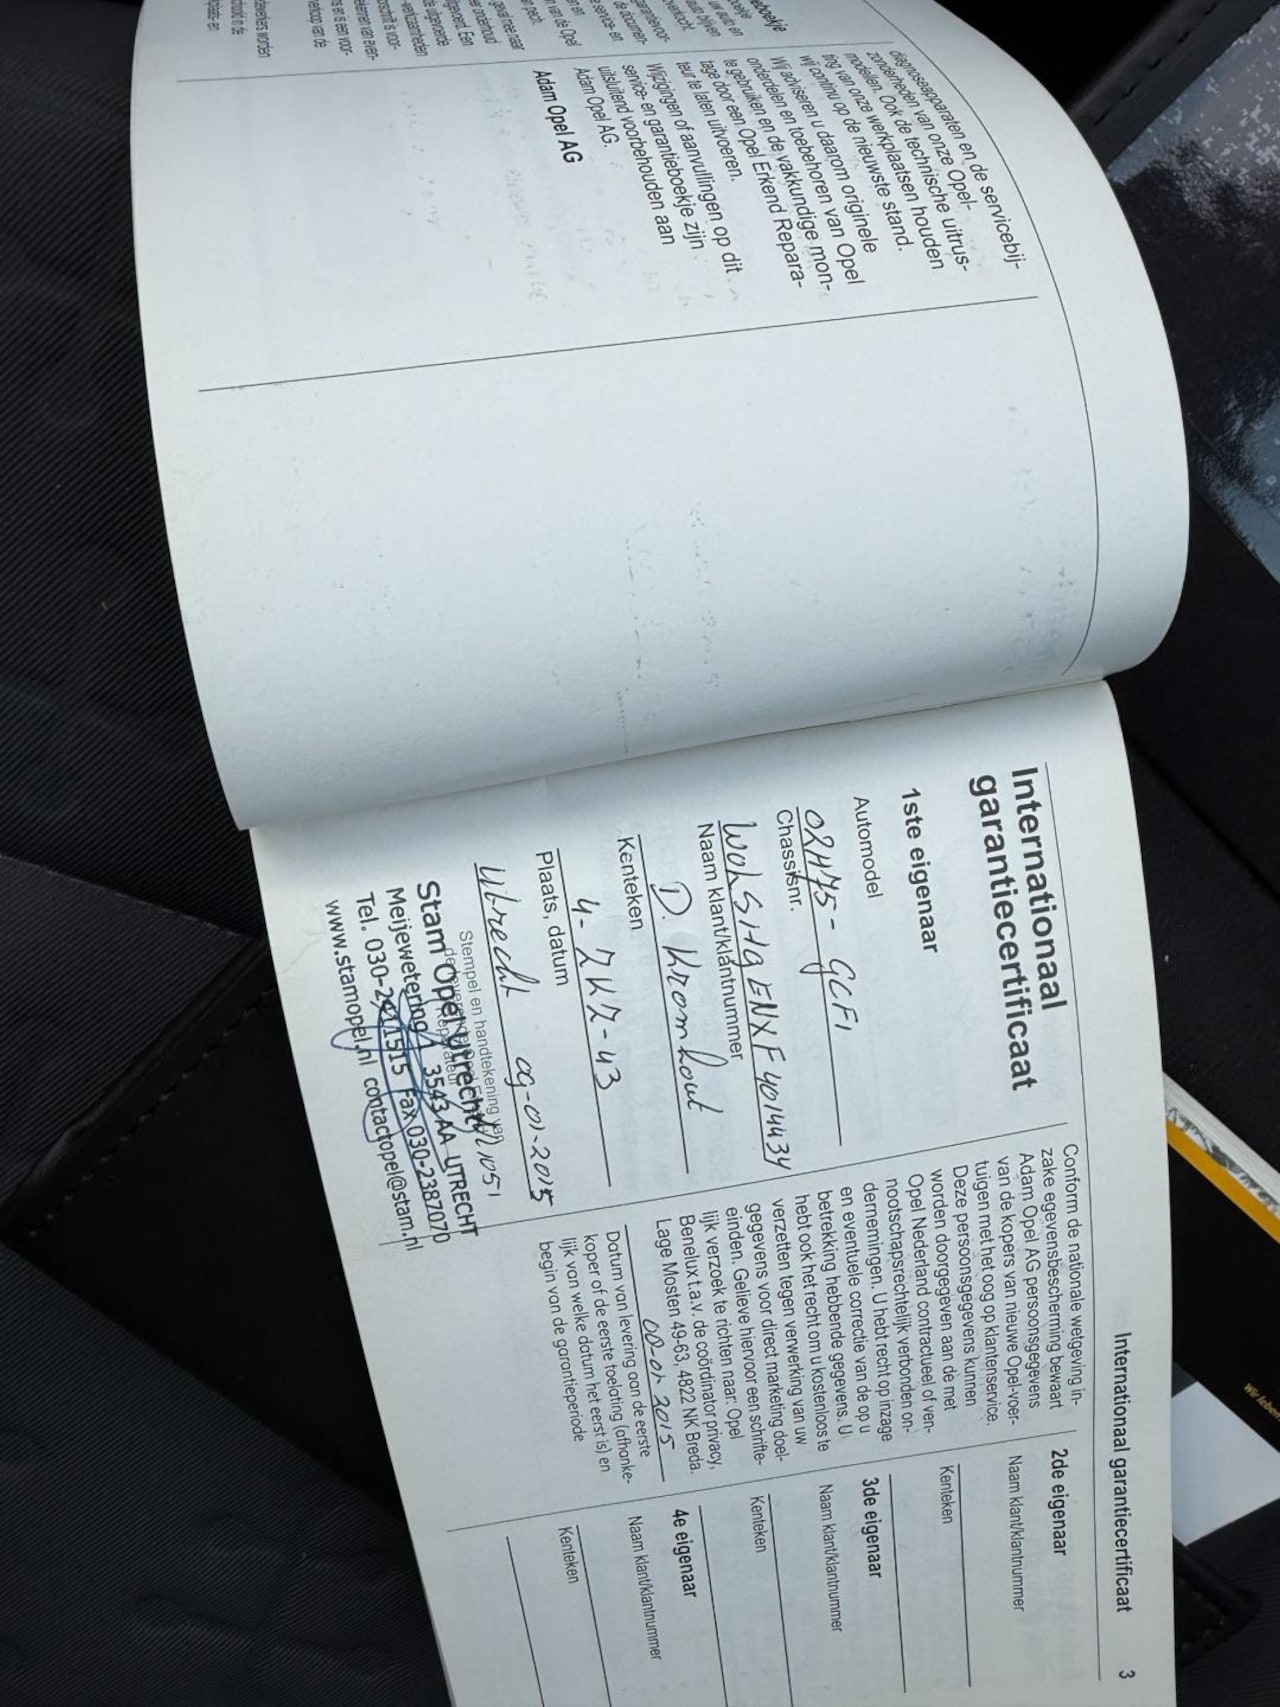 diagnoseapparaten en de servicebij-
zonderheden van onze Opel-
modellen. Ook de technische uitrus-
ting van onze werkplaatsen houden
wij continu op de nieuwste stand.
Wij adviseren u daarom originele
onderdelen en toebehoren van Opel
te gebruiken en de vakkundige mon-
tage door een Opel Erkend Repara-
teur te laten uitvoeren.
Wijzigingen of aanvullingen op dit
service- en garantieboekje zijn
uitsluitend voorbehouden aan
Adam Opel AG.
Adam Opel AG
Internationaal garantiecertificaat 3
Internationaal
garantiecertificaat
1ste eigenaar
Automodel
02H75-GCF1
Chassisnr.
W0LSH9ENXF4014434
Naam klant/klantnummer
D. Kromhout
Kenteken
4-ZKZ-43
Plaats, datum
Utrecht 09-01-2015
Stempel en handtekening van
Stam Opel Utrecht
Meijewetering 3543 AA UTRECHT
Tel. 030-2411515 Fax 030-2387070
www.stamopel.nl contactopel@stam.nl
Conform de nationale wetgeving in-
zake egevensbescherming bewaart
Adam Opel AG persoonsgegevens
van de kopers van nieuwe Opel-voer-
tuigen met het oog op klantenservice.
Deze persoonsgegevens kunnen
worden doorgegeven aan de met
Opel Nederland contractueel of ven-
nootschapsrechtelijk verbonden on-
dernemingen. U hebt recht op inzage
en eventuele correctie van de op u
betrekking hebbende gegevens. U
hebt ook het recht om u kosteloos te
verzetten tegen verwerking van uw
gegevens voor direct marketing doel-
einden. Gelieve hiervoor een schrifte-
lijk verzoek te richten naar: Opel
Benelux t.a.v. de coördinator privacy,
Lage Mosten 49-63, 4822 NK Breda.
09-01-2015
Datum van levering aan de eerste
koper of de eerste toelating (afhanke-
lijk van welke datum het eerst is) en
begin van de garantieperiode
2de eigenaar
Naam klant/klantnummer
Kenteken
3de eigenaar
Naam klant/klantnummer
Kenteken
4e eigenaar
Naam klant/klantnummer
Kenteken